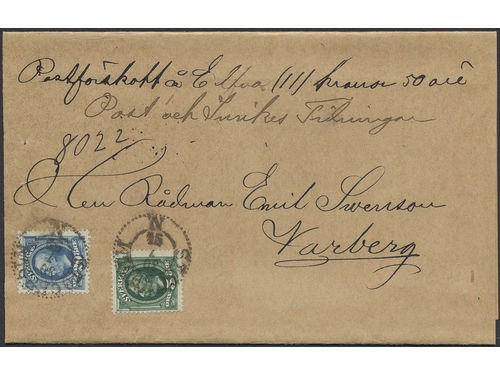 Postförskott å Elfva (11) kronor 50 öre
Post och Inrikes Tidningar
8022
Herr Rådman Emil Swenson
Varberg
SVERIGE